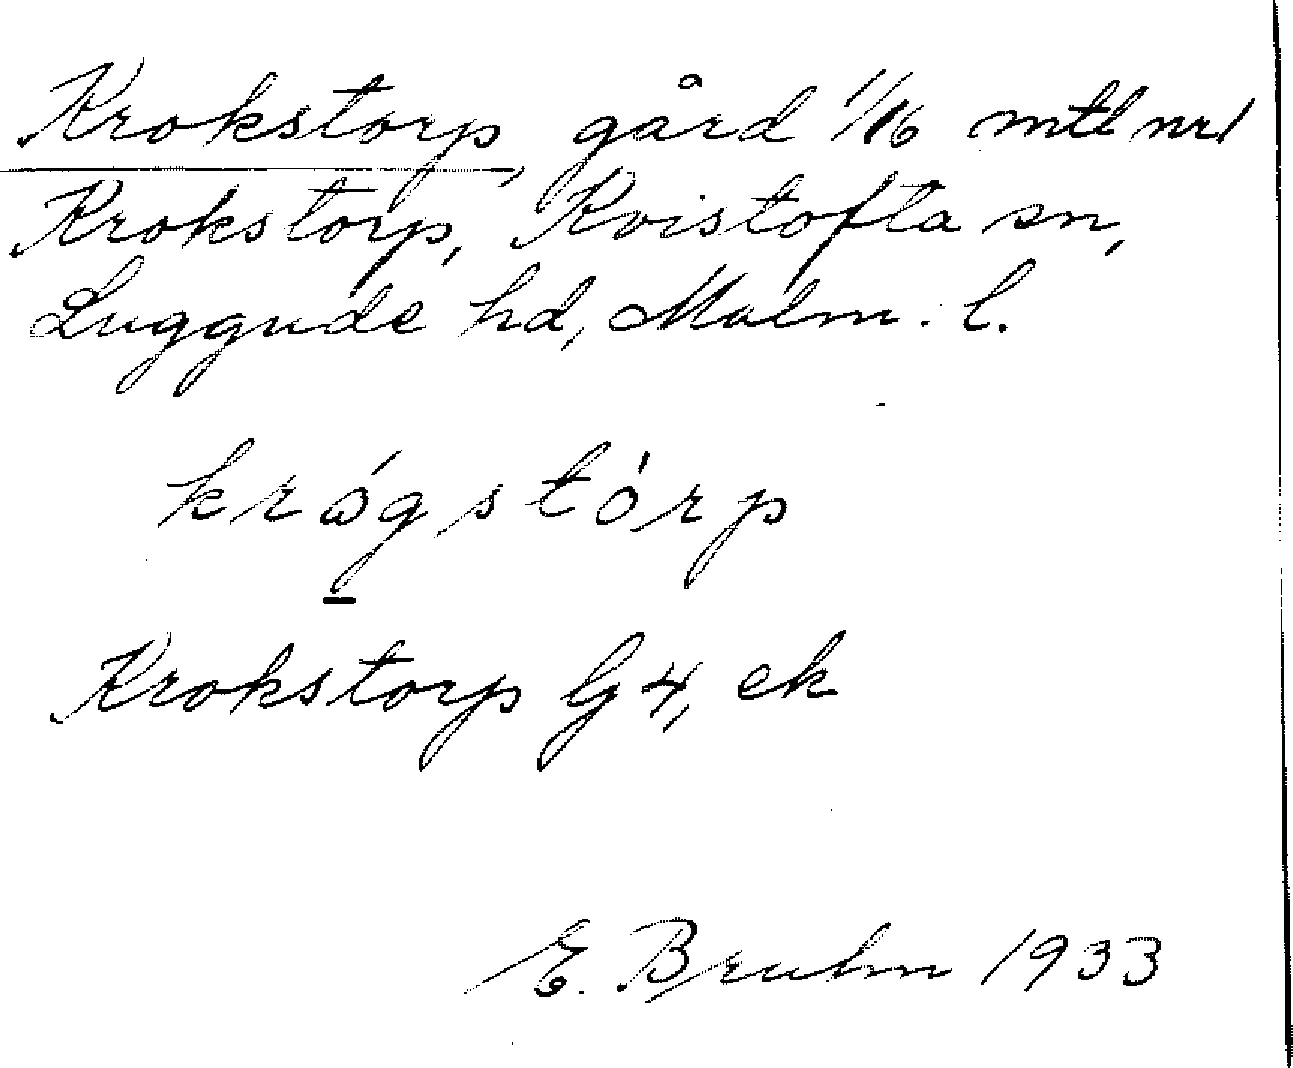 Krokstorp, gård 1/16 mtl nr 1
Krokstorp, Kvistofta sn,
Luggude hd, Malm. l.
krógstórp
Krokstorp G 4, ek
E. Bruhn 1933